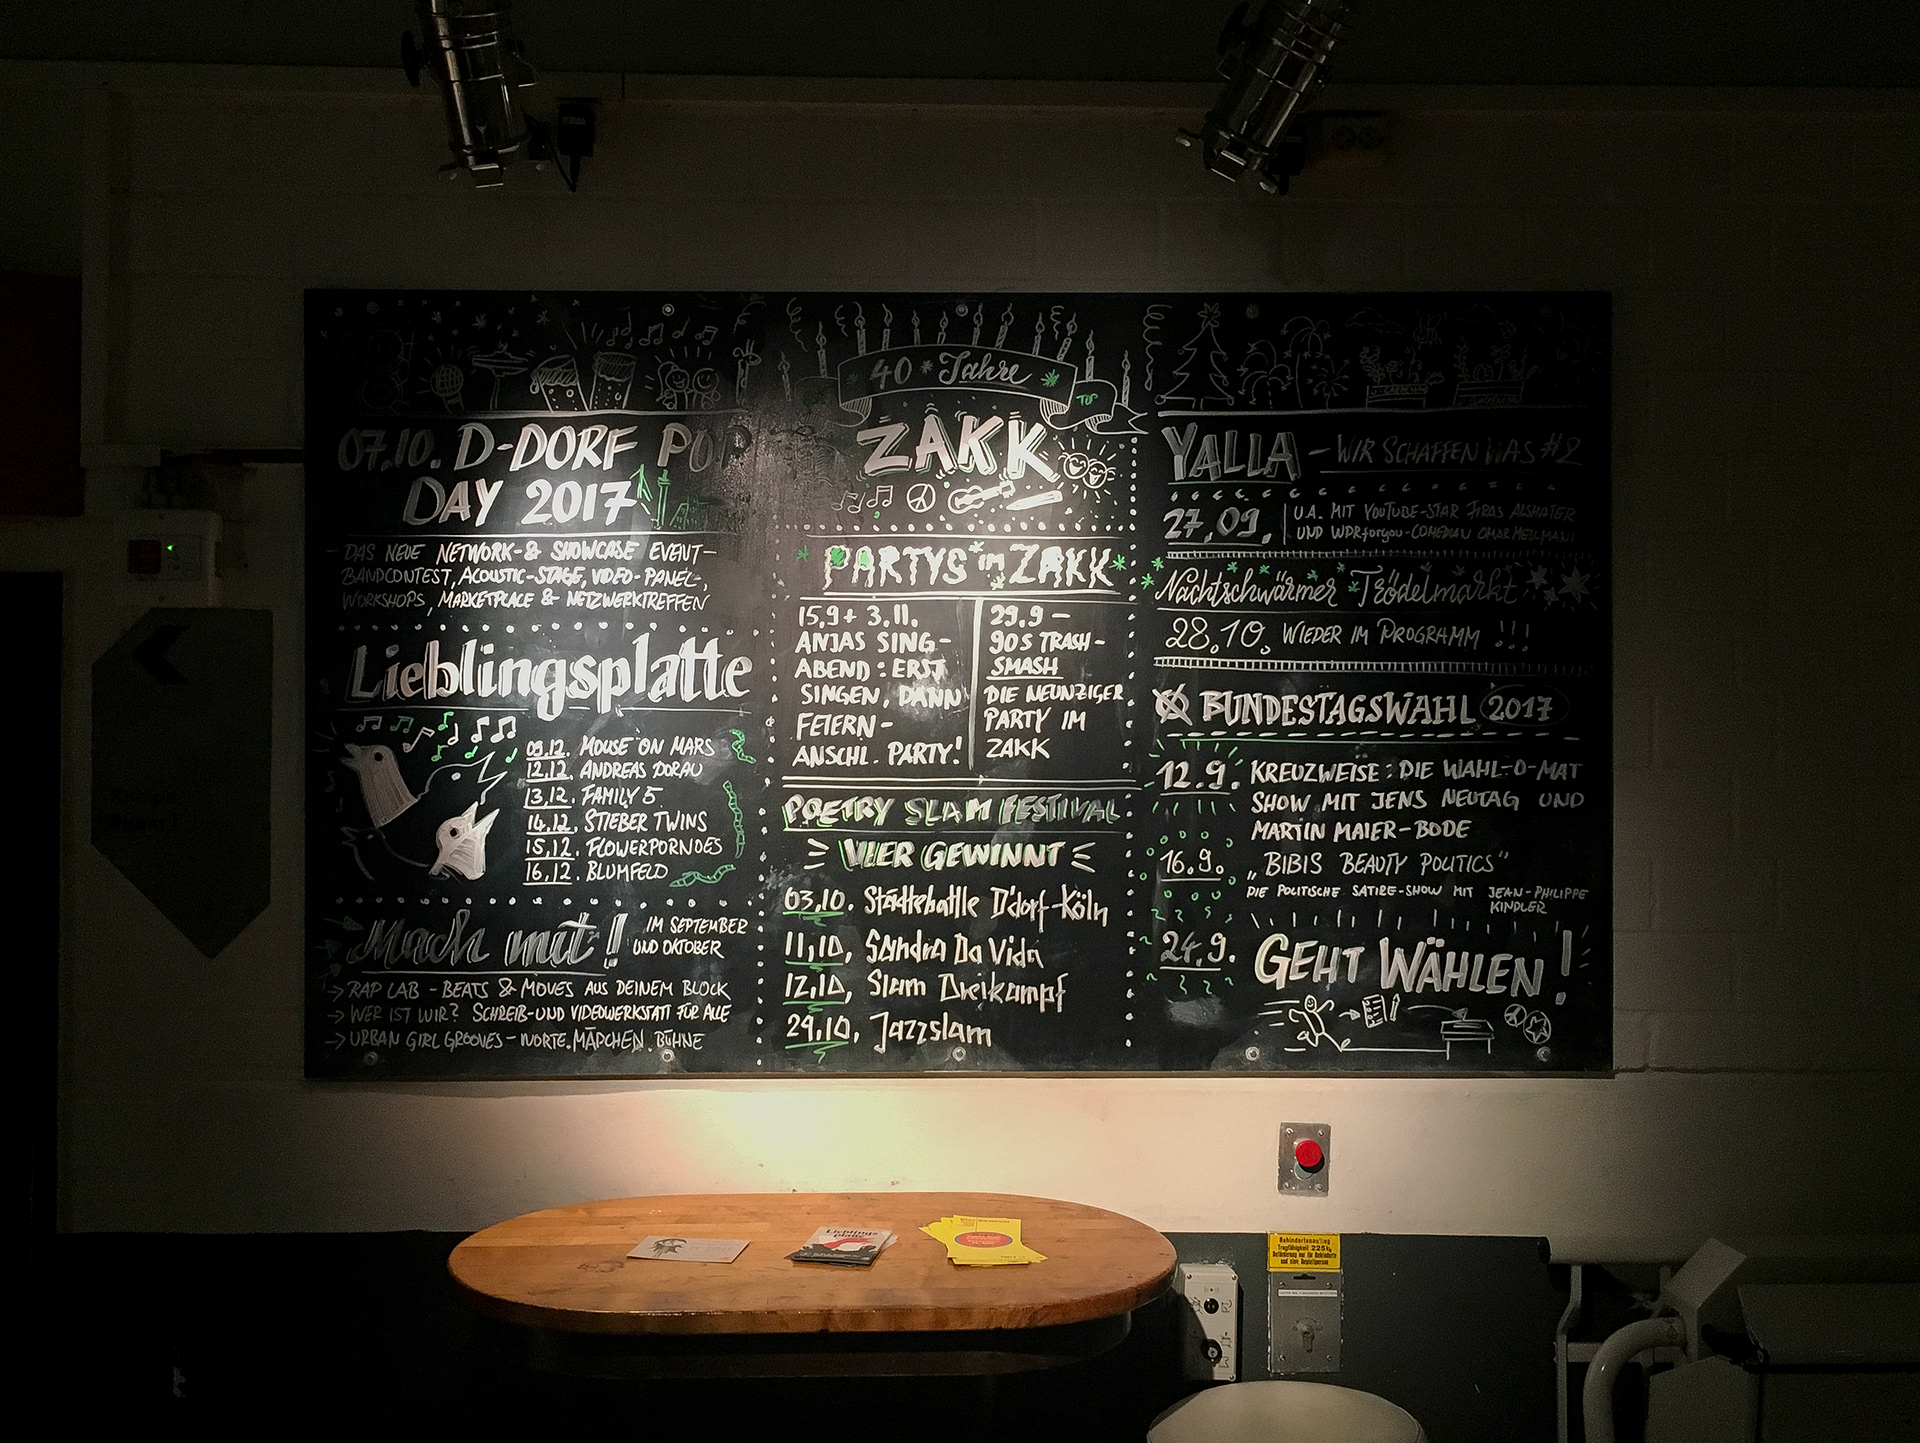 07.10. D-DORF POP
DAY 2017
DAS NEUE NETWORK- & SHOWCASE EVENT-
BANDCONTEST, ACOUSTIC-STAGE, VIDEO-PANEL-,
WORKSHOPS, MARKETPLACE & NETZWERKTREFFEN
Lieblingsplatte
09.12. MOUSE ON MARS
12.12. ANDREAS DORAU
13.12. FAMILY 5
14.12. STIEBER TWINS
15.12. FLOWERPORNOES
16.12. BLUMFELD
Mach mit! IM SEPTEMBER
UND OKTOBER
→ RAP LAB - BEATS & MOVES AUS DEINEM BLOCK
→ WER IST WIR? SCHREIB-UND VIDEOWERKSTATT FÜR ALLE
→ URBAN GIRL GROOVES - WORTE.MÄDCHEN.BÜHNE
40 * Jahre *
TOP
ZAKK
PARTYS im ZAKK
15.9 + 3.11.
ANJAS SING-
ABEND: ERST
SINGEN, DANN
FEIERN-
ANSCHL. PARTY!
29.9 -
90S TRASH-
SMASH
DIE NEUNZIGER
PARTY IM
ZAKK
POETRY SLAM FESTIVAL
VIER GEWINNT
03.10. Städtebattle D'dorf-Köln
11.10, Sandra Da Vida
12.10, Slam Dreikampf
29.10, Jazzslam
YALLA - WIR SCHAFFEN DAS #2
27.09. U.A. MIT YOUTUBE-STAR FIRAS ALSHATER
UND WDRforyou-COMEDIAN
Nachtschwärmer Trödelmarkt
28.10. WIEDER IM PROGRAMM !!!
BUNDESTAGSWAHL 2017
12.9. KREUZWEISE: DIE WAHL-O-MAT
SHOW MIT JENS NEUTAG UND
MARTIN MAIER-BODE
16.9. „BIBIS BEAUTY POLITICS"
DIE POLITISCHE SATIRE-SHOW MIT JEAN-PHILIPPE
KINDLER
24.9. GEHT WÄHLEN!
Lieblings
platte
Behindertenaufzug
Tragfähigkeit 225 kg
Beförderung nur für Behinderte
und eine Begleitperson